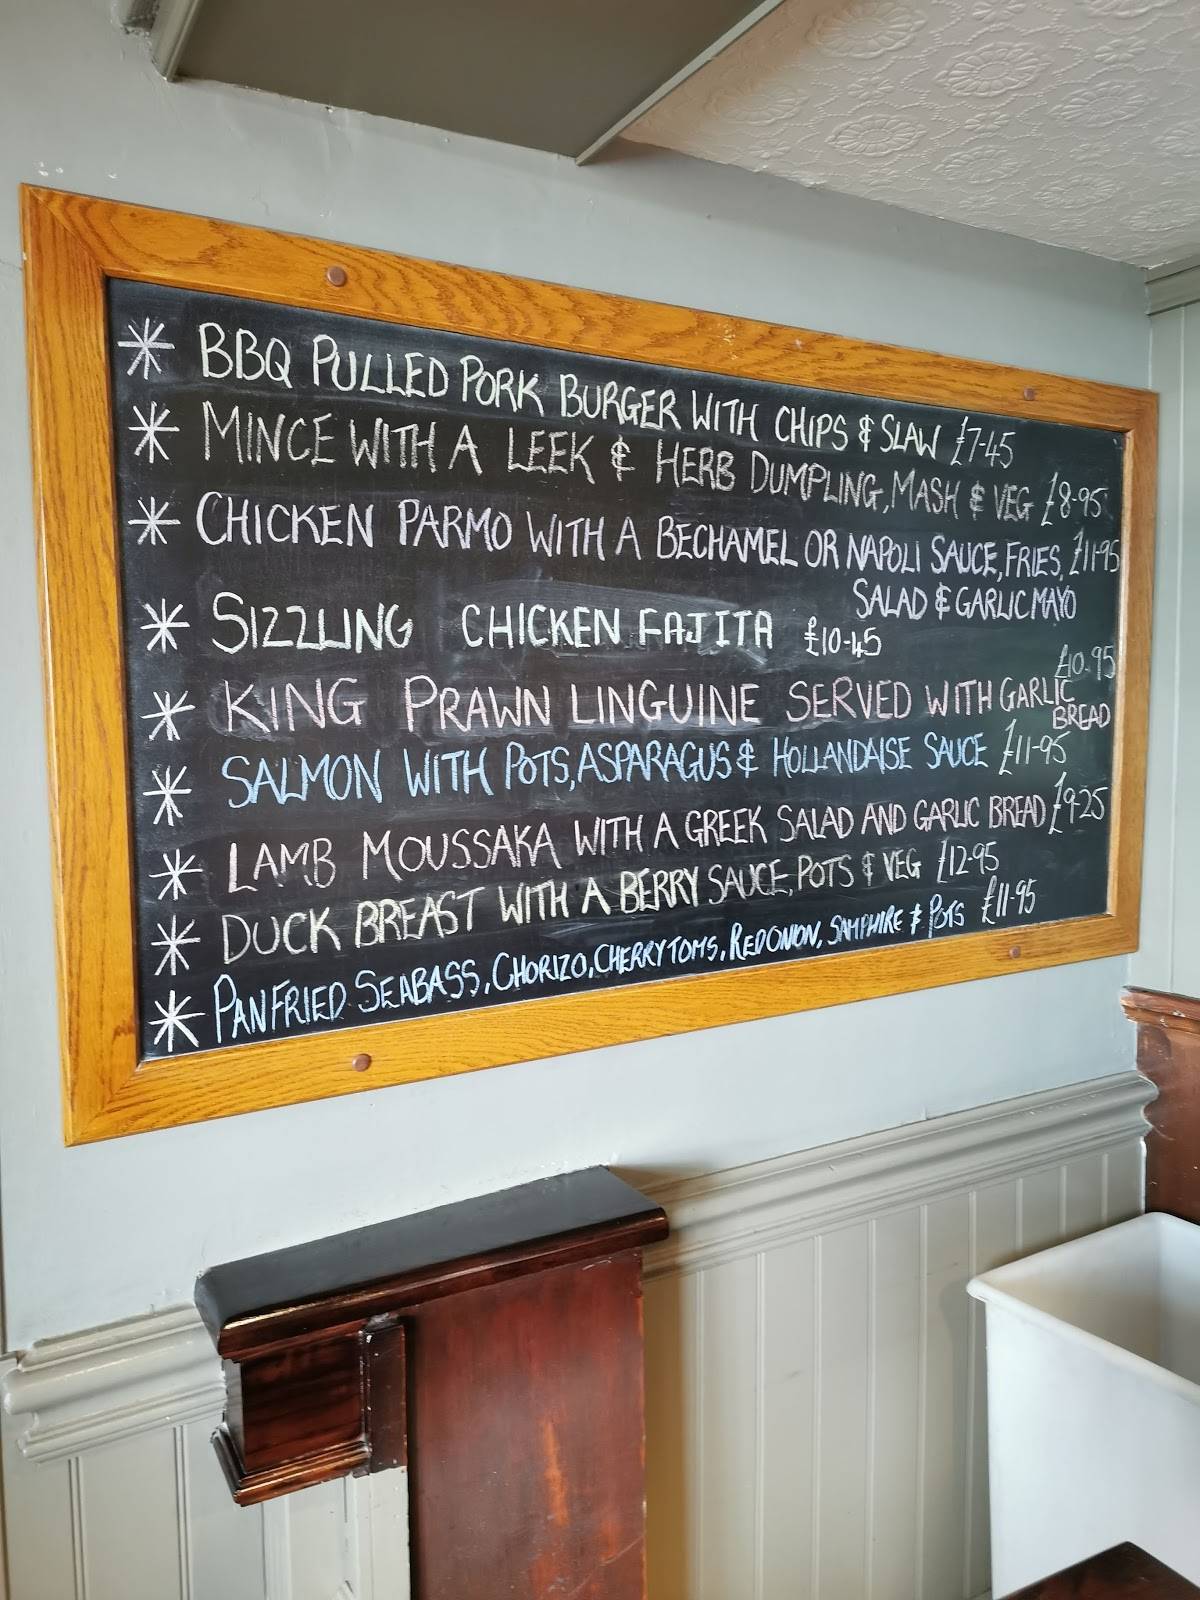 * BBQ PULLED PORK BURGER WITH CHIPS & SLAW £7-45
* MINCE WITH A LEEK & HERB DUMPLING, MASH & VEG £8-95
* CHICKEN PARMO WITH A BECHAMEL OR NAPOLI SAUCE, FRIES, £11-95
SALAD & GARLIC MAYO
* SIZZLING CHICKEN FAJITA £10-45
£10.95
* KING PRAWN LINGUINE SERVED WITH GARLIC
BREAD
* SALMON WITH POTS, ASPARAGUS & HOLLANDAISE SAUCE £11-95
* LAMB MOUSSAKA WITH A GREEK SALAD AND GARLIC BREAD £9-25
* DUCK BREAST WITH A BERRY SAUCE, POTS & VEG £12-95
* PANFRIED SEABASS, CHORIZO, CHERRY TOMS, RED ONION, SAMPHIRE & POTS £11-95